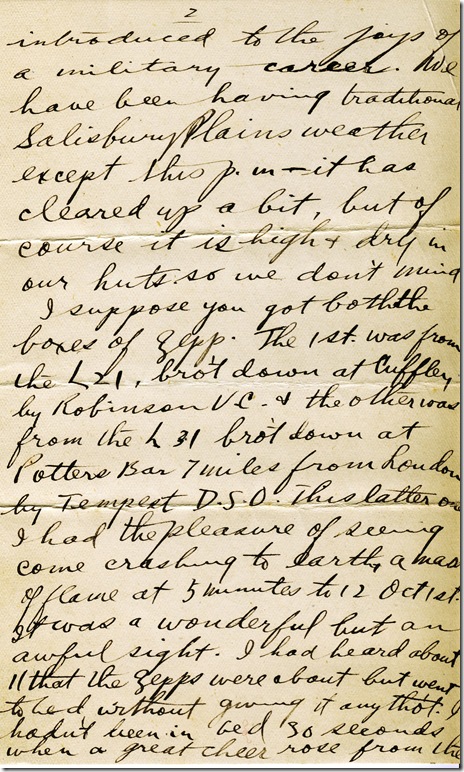 2
introduced to the joys of
a military career. We
have been having traditional
Salisbury Plains weather
except this p.m – it has
cleared up a bit, but of
course it is high & dry in
our huts so we don't mind
I suppose you got both the
boxes of Zepp. The 1st. was from
the L21, bro't down at Cuffley
by Robinson V.C. & the other was
from the L 31 bro't down at
Potters Bar 7 miles from London
by Tempest D.S.O. This latter one
I had the pleasure of seeing
come crashing to earth, a mass
of flame at 5 minutes to 12 Oct 1st.
It was a wonderful but an
awful sight. I had heard about
11 that the Zepps were about but went
to bed without giving it any thot. I
hadn't been in bed 30 seconds
when a great cheer rose from the